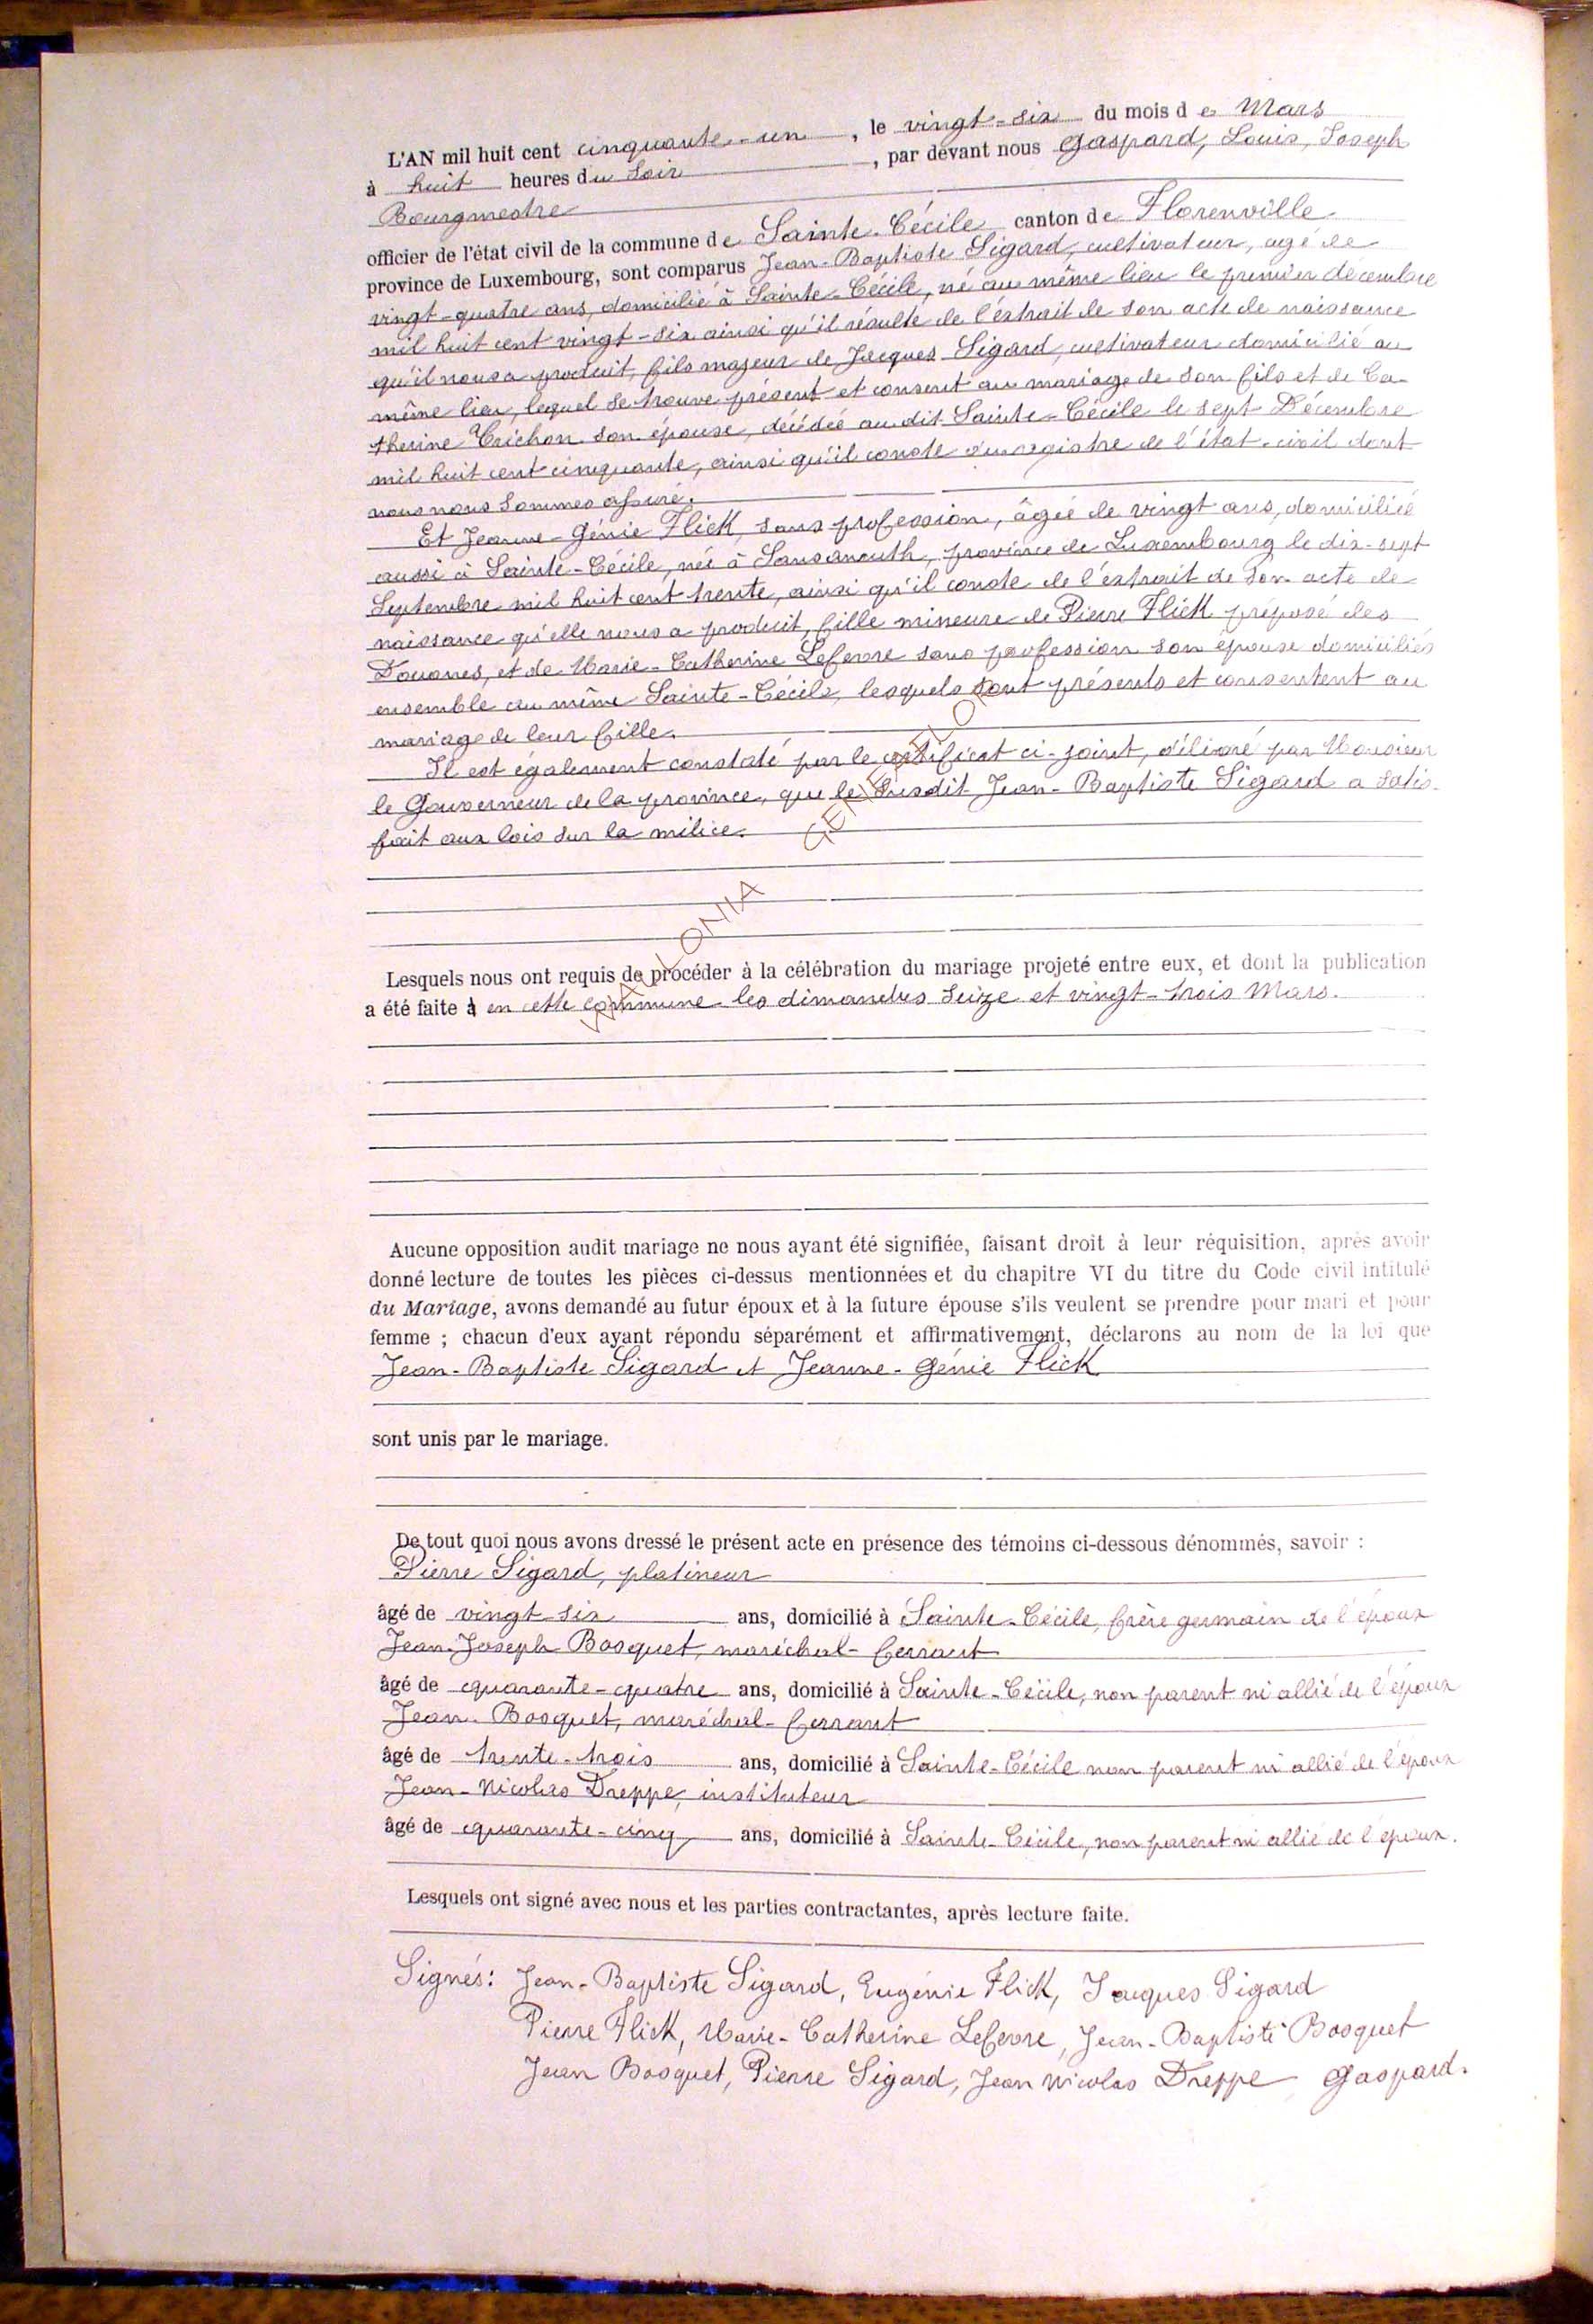 L'AN mil huit cent cinquante-un, le vingt-six du mois de Mars
à huit heures du Soir, par devant nous Gaspard, Louis, Joseph
Bourgmestre
officier de l'état civil de la commune de Sainte-Cécile canton de Florenville
province de Luxembourg, sont comparus Jean-Baptiste Sigard, cultivateur, agé de
vingt-quatre ans, domicilié à Sainte-Cécile, né au même lieu le premier décembre
mil huit cent vingt-six ainsi qu'il résulte de l'extrait de son acte de naissance
qu'il nous a produit, fils majeur de Jacques Sigard, cultivateur domicilié au
même lieu, lequel se trouve présent et consent au mariage de son fils et de Ca-
therine Crichon son épouse, décédée au dit Sainte-Cécile le sept Décembre
mil huit cent cinquante, ainsi qu'il conste du registre de l'état-civil dont
nous nous sommes assuré.
Et Jeanne-Génie Flick, sans profession, âgée de vingt ans, domiciliée
aussi à Sainte-Cécile, née à Sansanruth, province de Luxembourg le dix-sept
Septembre mil huit cent trente, ainsi qu'il conste de l'extrait de son acte de
naissance qu'elle nous a produit, fille mineure de Pierre Flick préposé des
Douanes, et de Marie-Catherine Lefevre sans profession son épouse domiciliés
ensemble au même Sainte-Cécile, lesquels sont présents et consentent au
mariage de leur fille.
Il est également constaté par le certificat ci-joint, délivré par Monsieur
le Gouverneur de la province, que le susdit Jean-Baptiste Sigard a satis-
fait aux lois sur la milice.
WALLONIA GENERATION
Lesquels nous ont requis de procéder à la célébration du mariage projeté entre eux, et dont la publication
a été faite à en cette commune les dimanches seize et vingt-trois Mars.
Aucune opposition audit mariage ne nous ayant été signifiée, faisant droit à leur réquisition, après avoir
donné lecture de toutes les pièces ci-dessus mentionnées et du chapitre VI du titre du Code civil intitulé
du Mariage, avons demandé au futur époux et à la future épouse s'ils veulent se prendre pour mari et pour
femme ; chacun d'eux ayant répondu séparément et affirmativement, déclarons au nom de la loi que
Jean-Baptiste Sigard et Jeanne-Génie Flick
sont unis par le mariage.
De tout quoi nous avons dressé le présent acte en présence des témoins ci-dessous dénommés, savoir :
Pierre Sigard, platineur
âgé de vingt-six ans, domicilié à Sainte-Cécile, frère germain de l'époux
Jean-Joseph Bosquet, maréchal-ferrant
âgé de quarante-quatre ans, domicilié à Sainte-Cécile, non parent ni allié de l'époux
Jean Bosquet, maréchal-ferrant
âgé de trente-trois ans, domicilié à Sainte-Cécile non parent ni allié de l'époux
Jean-Nicolas Dreppe, instituteur
âgé de quarante-cinq ans, domicilié à Sainte-Cécile, non parent ni allié de l'époux.
Lesquels ont signé avec nous et les parties contractantes, après lecture faite.
Signés: Jean-Baptiste Sigard, Eugénie Flick, Jacques Sigard
Pierre Flick, Marie-Catherine Lefevre, Jean-Baptiste Bosquet
Jean Bosquet, Pierre Sigard, Jean Nicolas Dreppe Gaspard.